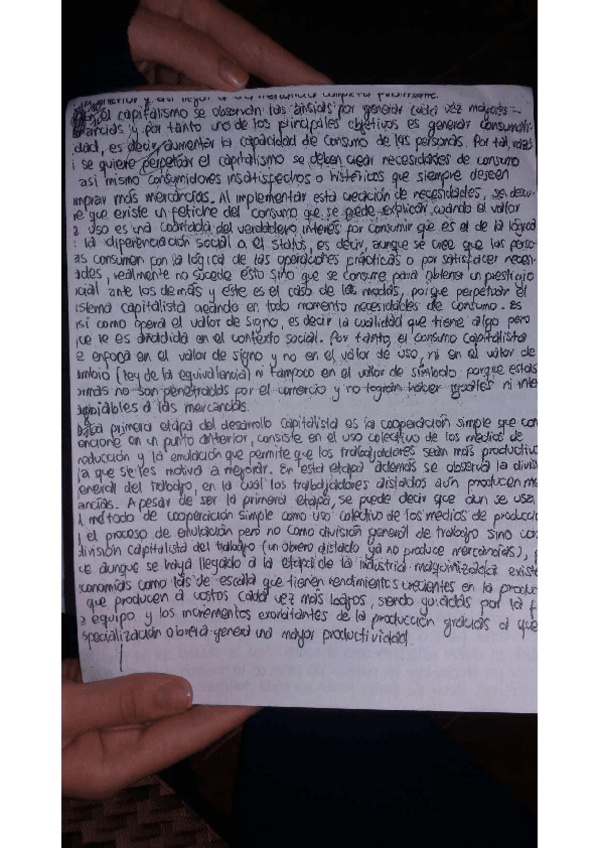 el capitalismo se observan las ansias por generar cada vez mayores
ancias y por tanto uno de los principales objetivos es generar consumoli-
dad, es decir, aumentar la capacidad de consumo de las personas. Por tal,
i se quiere perpetuar el capitalismo se deben crear necesidades de consumo
así mismo consumidores insatisfechos o histéricos que siempre deseen
mprar más mercancías. Al implementar esta creación de necesidades, se
re que existe un fetiche del consumo que se puede explicar cuando el valor
e uso es una coartada del verdadero interés por consumir que es el de la lógica
: la diferenciación social o el status, es decir, aunque se cree que las perso-
as consumen por la lógica de las operaciones prácticas o por satisfacer necesi-
ades, realmente no sucede esto sino que se consume para obtener un prestigio
ocial ante los demás y este es el caso de las modas, porque perpetúan el
istema capitalista creando en todo momento necesidades de consumo. Es
sí como opera el valor de signo, es decir la cualidad que tiene algo pero
que le es añadida en el contexto social. Por tanto, el consumo capitalista
e enfoca en el valor de signo y no en el valor de uso, ni en el valor de
ambio (ley de la equivalencia) ni tampoco en el valor de símbolo porque estas
ormas no son penetradas por el comercio y no logran hacer iguales ni inte
ambiables a las mercancías.
La primera etapa del desarrollo capitalista es la cooperación simple que con
encioné en un punto anterior, consiste en el uso colectivo de los medios de
roducción y la emulación que permite que los trabajadores sean más productivo
ya que se les motiva a mejorar. En esta etapa además se observa la divis
general del trabajo, en la cual los trabajadores aislados aún producen me
ancías. A pesar de ser la primera etapa, se puede decir que aún se usa
l método de cooperación simple como uso colectivo de los medios de producció
y el proceso de emulación pero no como división general de trabajo sino co
división capitalista del trabajo (un obrero aislado ya no produce mercancías), p
ue aunque se haya llegado a la etapa de la industria maquinizada existe
conomías como las de escala que tienen rendimientos crecientes en la produc
que producen a costos cada vez más bajos, siendo guiadas por la f
e equipo y los incrementos exorbitantes de la producción gracias a que
specialización obrera genera una mayor productividad.